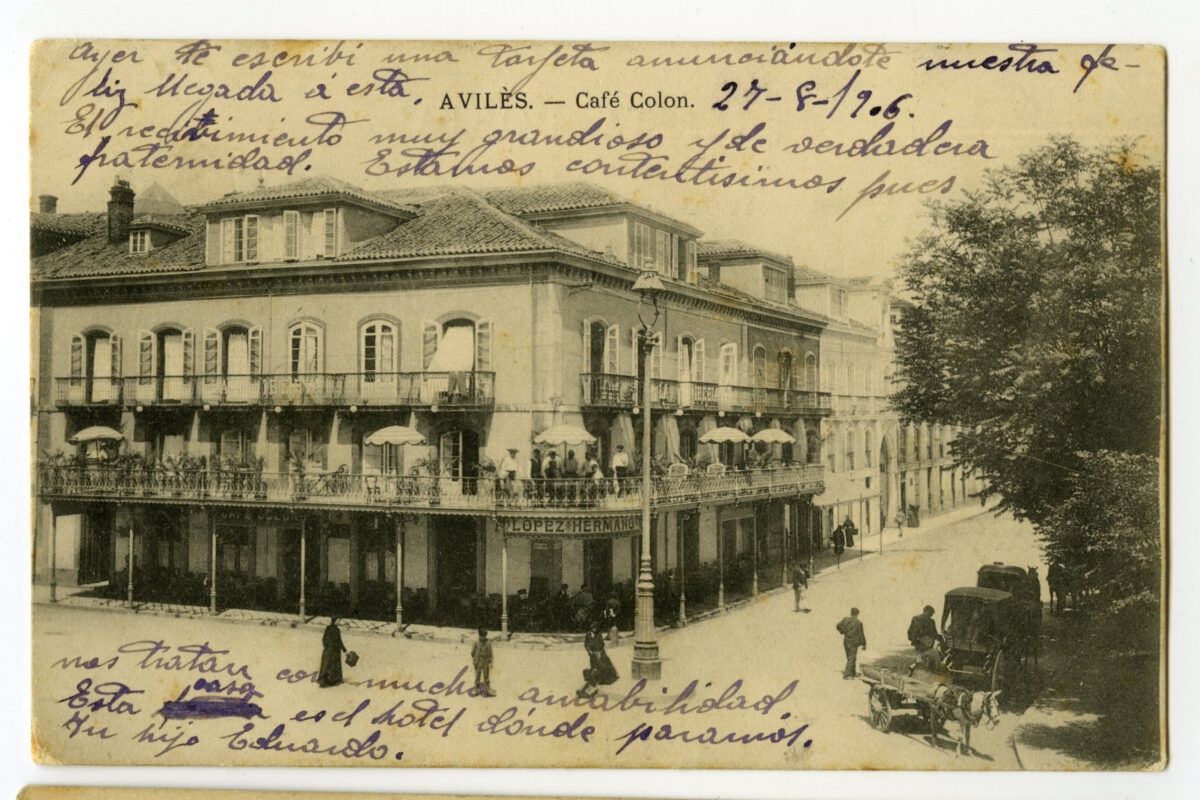 ayer te escribi una tarjeta anunciándote nuestra fe-
liz llegada á esta.
AVILÈS. — Café Colon.
27-8-1906.
El recibimiento muy grandioso y de verdadera
fraternidad. Estamos contentisimos pues
LOPEZ HERMANO
nos tratan con mucha amabilidad.
Esta casa es el hotel dónde paramos.
Tu hijo Eduardo.